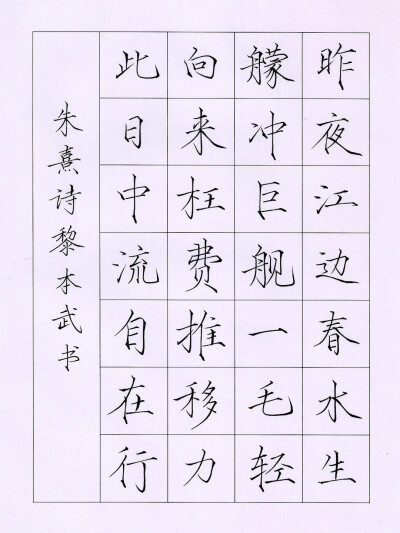 昨夜江边春水生
艨冲巨舰一毛轻
向来枉费推移力
此日中流自在行
朱熹诗黎本武书